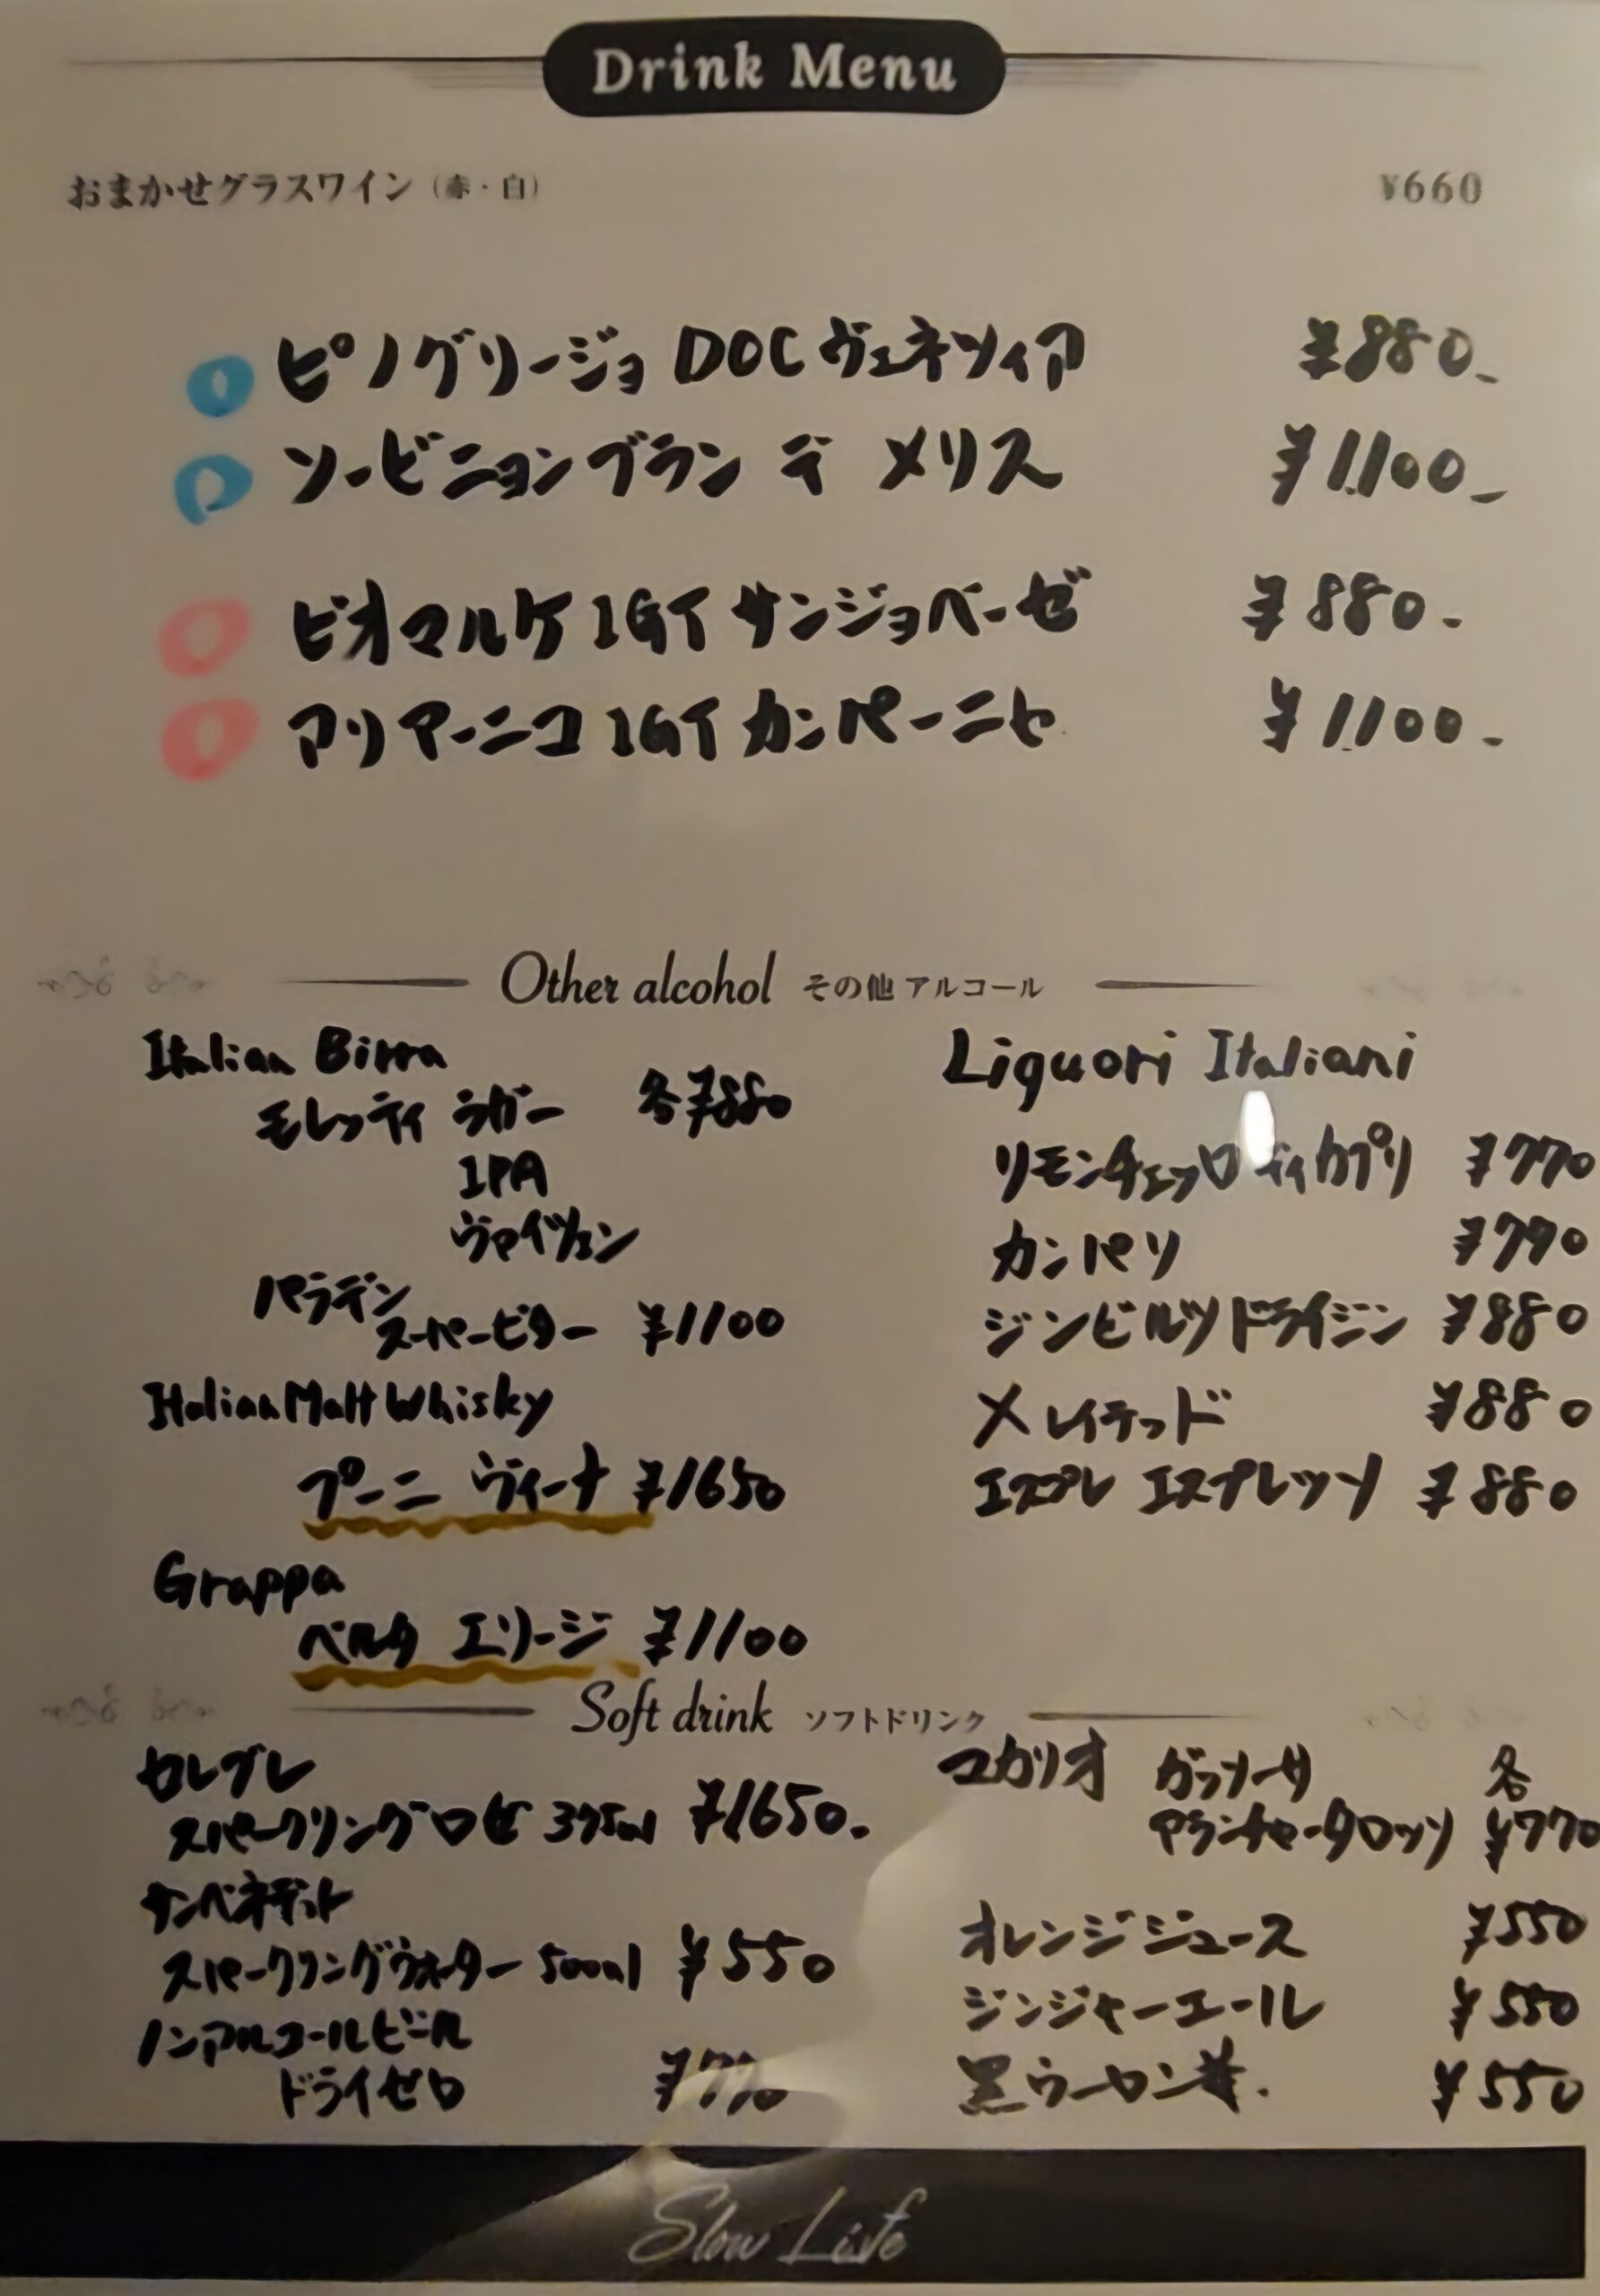 Drink Menu
おまかせグラスワイン（赤・白） ¥660
ピノグリージョ DOC ヴェネツィア ¥880-
ソービニョンブラン デ メリス ¥1,100-
ビオマルケ IGT サンジョベーゼ ¥880-
アリアーニコ IGT カンパーニャ ¥1,100-
Other alcohol その他アルコール
Italian Birra
モレッティ ラガー 各¥880
IPA
ヴァイツェン
パラデン
スーパービター ¥1100
Italian Malt Whisky
プーニ ヴィーナ ¥1650
Grappa
ベルタ エリージ ¥1100
Liquori Italiani
リモンチェッロ ディカプリ ¥770
カンパリ ¥770
ジンビルツドライジン ¥880
メレイテッド ¥880
エスプレ エスプレッソ ¥880
Soft drink ソフトドリンク
セレブレ
スパークリングロゼ 375ml ¥1650.
サンベネデット
スパークリングウォーター 500ml ¥550
ノンアルコールビール
ドライゼロ ¥770
マカリオ ガッソーサ 各
アランチャータロッソ ¥770
オレンジジュース ¥550
ジンジャーエール ¥550
黒ウーロン茶. ¥550
Slow Life